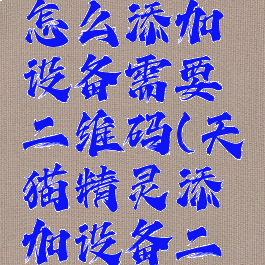 怎么添加
设备需要
二维码(天
猫精灵添
加设备二